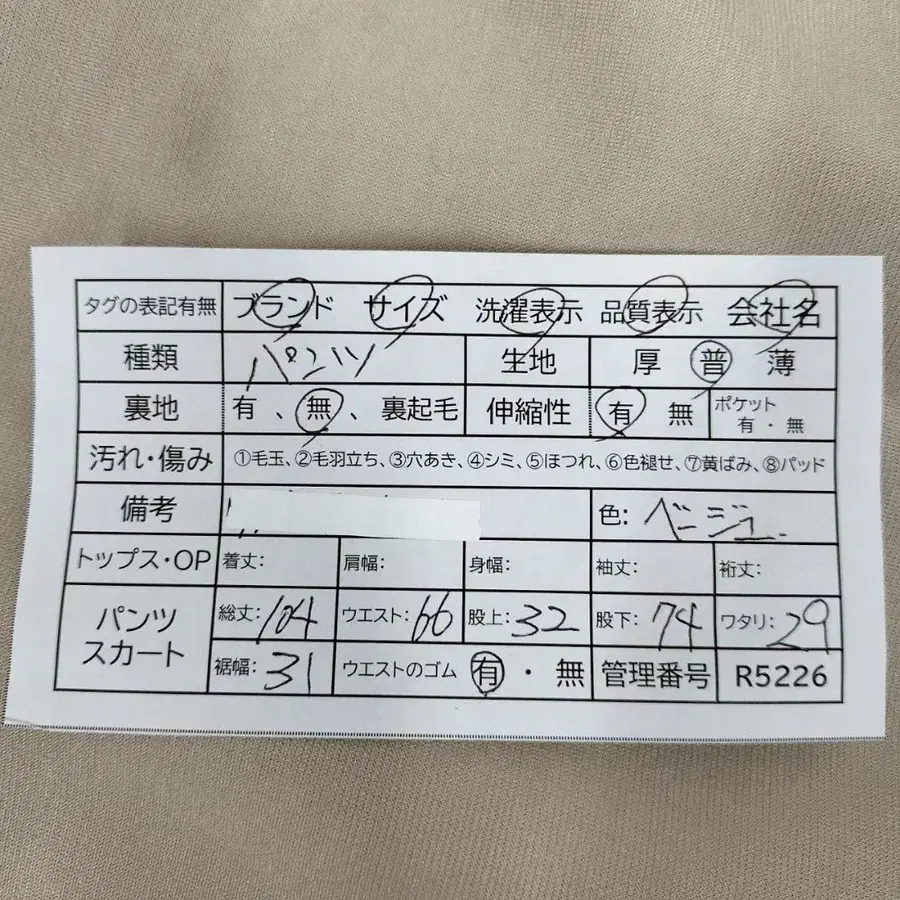 タグの表記有無 ブランド サイズ 洗濯表示 品質表示 会社名
種類 パンツ 生地 厚 普 薄
裏地 有 、 無 、 裏起毛 伸縮性 有 無 ポケット 有 ・ 無
汚れ・傷み ①毛玉、②毛羽立ち、③穴あき、④シミ、⑤ほつれ、⑥色褪せ、⑦黄ばみ、⑧パッド
備考 色: ベージュ
トップス・OP 着丈: 肩幅: 身幅: 袖丈: 裄丈:
パンツ スカート 総丈: 104 ウエスト: 66 股上: 32 股下: 74 ワタリ: 29
裾幅: 31 ウエストのゴム 有 ・ 無 管理番号 R5226